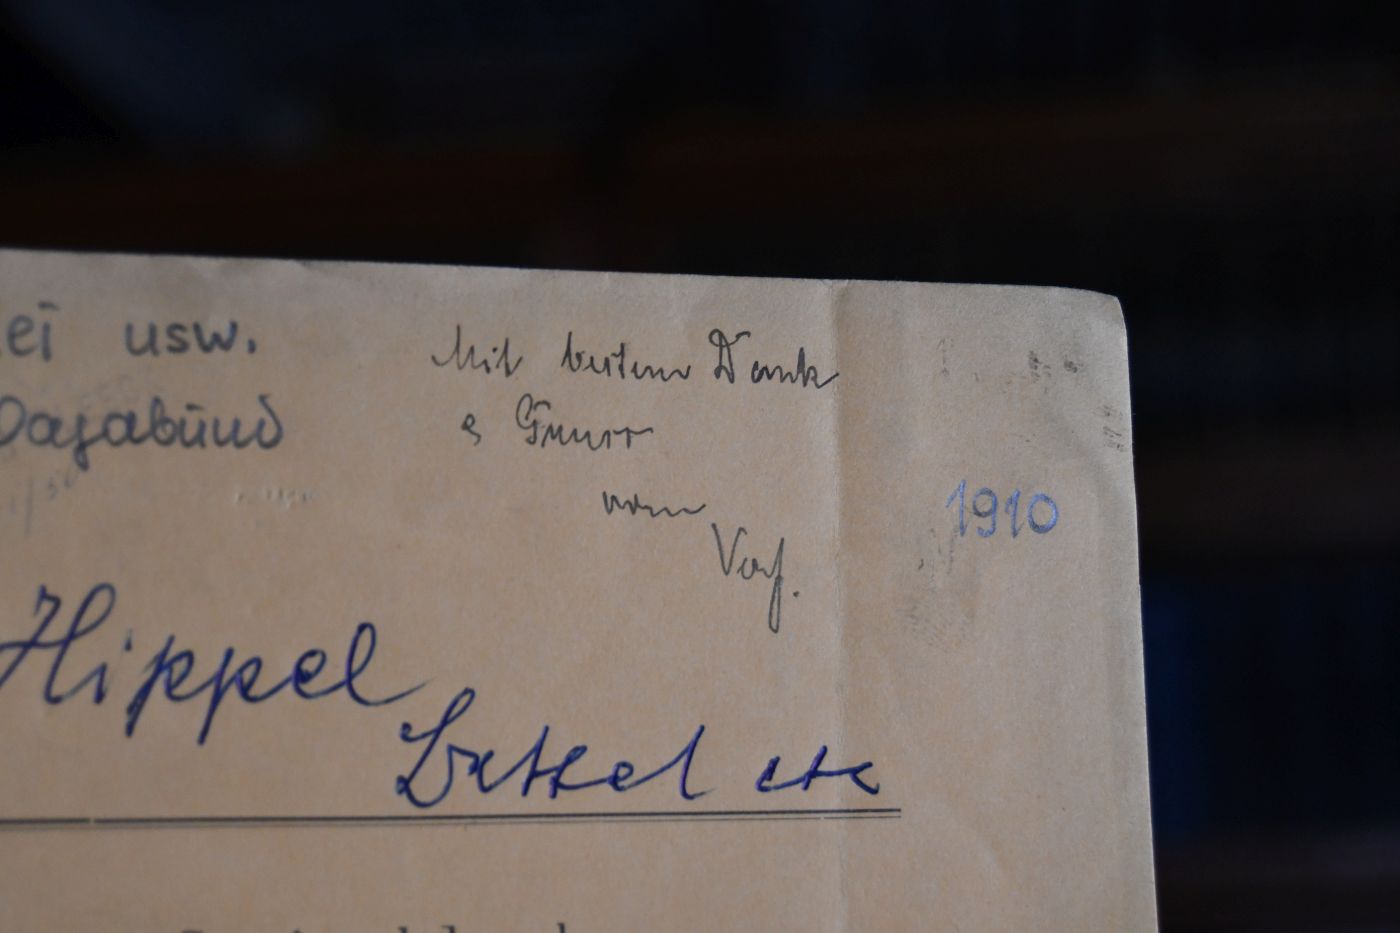 ei usw.
Vagabund
Mit bestem Dank
& Gruss
vom
Verf.
1910
Hippel
etc